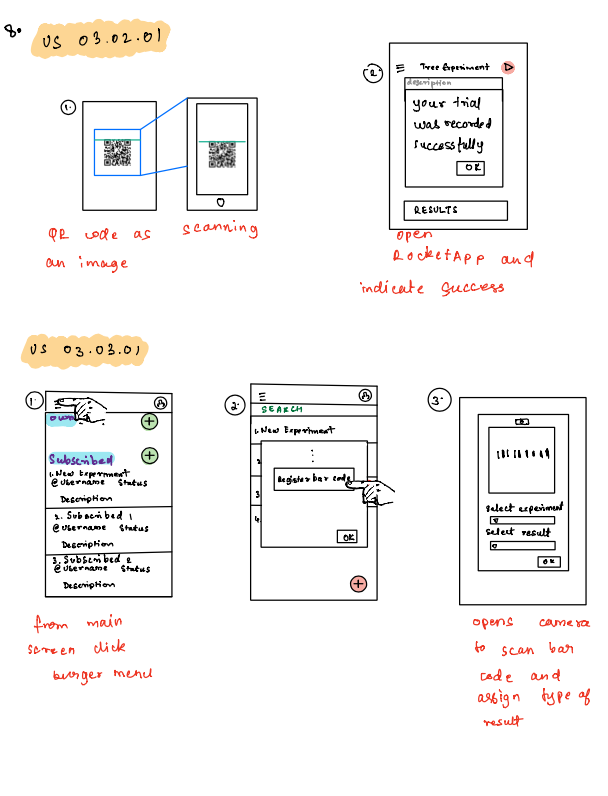 8.
US 03.02.01
1.
QR code as
an image
scanning
2.
Tree Experiment
description
your trial
was recorded
successfully
OK
RESULTS
open
RocketApp and
indicate success
US 03.03.01
1.
own
Subscribed
1. New Experiment
@Username Status
Description
2. Subscribed 1
@Username Status
Description
3. Subscribed 2
@Username Status
Description
from main
screen click
burger menu
2.
SEARCH
1. New Experiment
2
3
4.
Register bar code
OK
3.
select experiment
select result
OK
opens camera
to scan bar
code and
assign type of
result